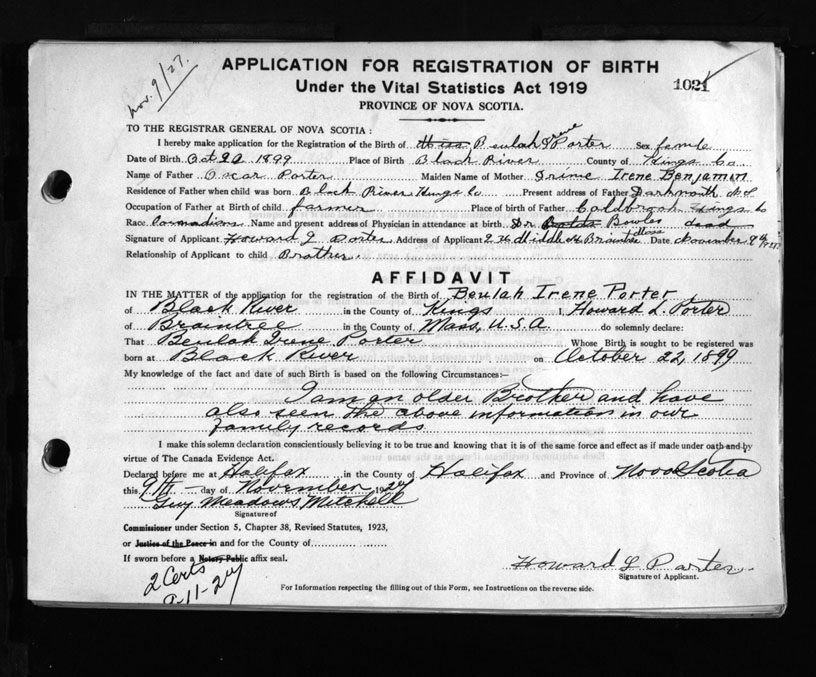 Nov. 9/27.
APPLICATION FOR REGISTRATION OF BIRTH
Under the Vital Statistics Act 1919
1021
PROVINCE OF NOVA SCOTIA.
TO THE REGISTRAR GENERAL OF NOVA SCOTIA :
I hereby make application for the Registration of the Birth of Miss Beulah Irene Porter Sex female
Date of Birth Oct 22 1899 Place of Birth Black River County of Kings Co
Name of Father Oscar Porter Maiden Name of Mother Irene Benjamin
Residence of Father when child was born Black River Kings Co Present address of Father Dartmouth N S
Occupation of Father at Birth of child farmer Place of birth of Father Coldbrook Kings Co
Race Canadian Name and present address of Physician in attendance at birth Dr Bowles dead
Signature of Applicant Howard L Porter Address of Applicant Middle St Braintree Mass Date November 9th
Relationship of Applicant to child Brother.
AFFIDAVIT
IN THE MATTER of the application for the registration of the Birth of Beulah Irene Porter
of Black River in the County of Kings I, Howard L. Porter
of Braintree in the County of Mass, U.S.A. do solemnly declare:
That Beulah Irene Porter Whose Birth is sought to be registered was
born at Black River on October 22, 1899
My knowledge of the fact and date of such Birth is based on the following Circumstances:-
I am an older Brother and have
also seen the above information in our
family records
I make this solemn declaration conscientiously believing it to be true and knowing that it is of the same force and effect as if made under oath and by
virtue of The Canada Evidence Act.
Declared before me at Halifax in the County of Halifax and Province of Nova Scotia
this 9th day of November 1927
Guy Meadows Mitchell
Signature of
Commissioner under Section 5, Chapter 38, Revised Statutes, 1923,
or Justice of the Peace in and for the County of
If sworn before a Notary Public affix seal.
Howard L Porter
Signature of Applicant.
2 Certs
9-11-27
For Information respecting the filling out of this Form, see Instructions on the reverse side.